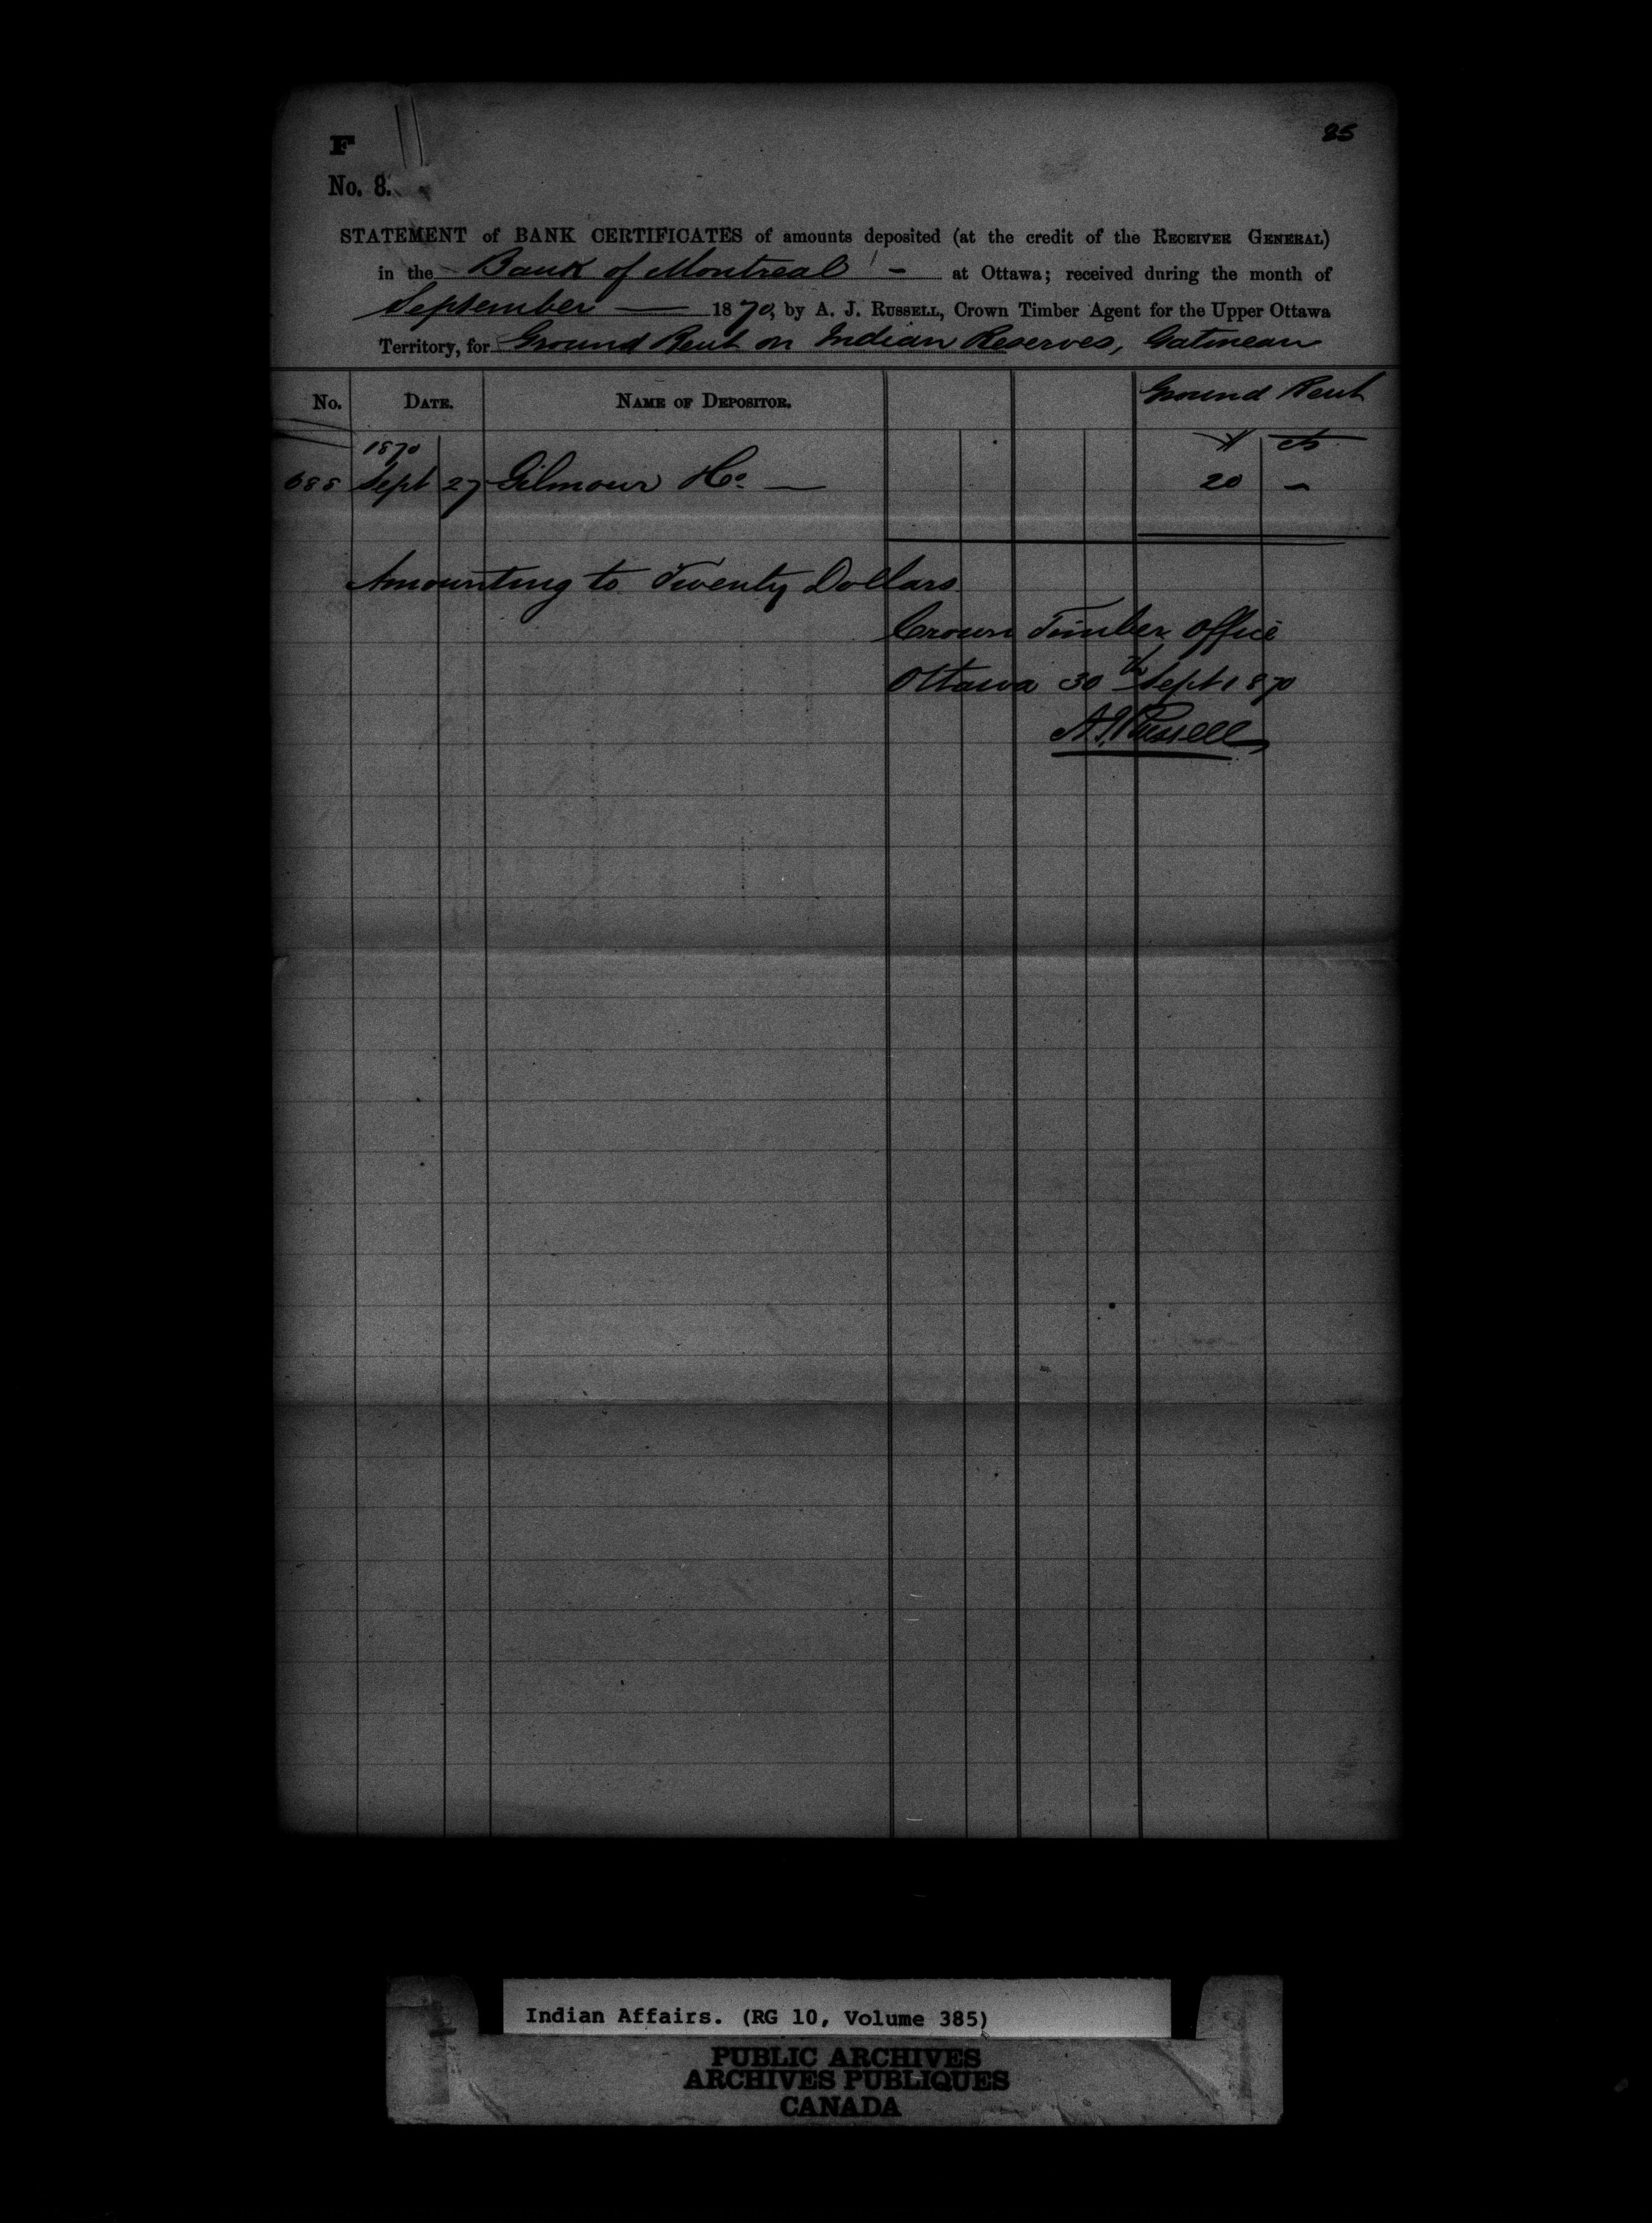 85
F
No. 8.
STATEMENT of BANK CERTIFICATES of amounts deposited (at the credit of the RECEIVER GENERAL)
in the Bank of Montreal - at Ottawa; received during the month of
September — 1870, by A. J. RUSSELL, Crown Timber Agent for the Upper Ottawa
Territory, for Ground Rent on Indian Reserves, Gatineau
No. DATE. NAME OF DEPOSITOR. Ground Rent
1870 $ cts
688 Sept 27 Gilmour & Co. — 20 -
Amounting to Twenty Dollars
Crown Timber Office
Ottawa 30th Sept 1870
A. J. Russell
Indian Affairs. (RG 10, Volume 385)
PUBLIC ARCHIVES
ARCHIVES PUBLIQUES
CANADA